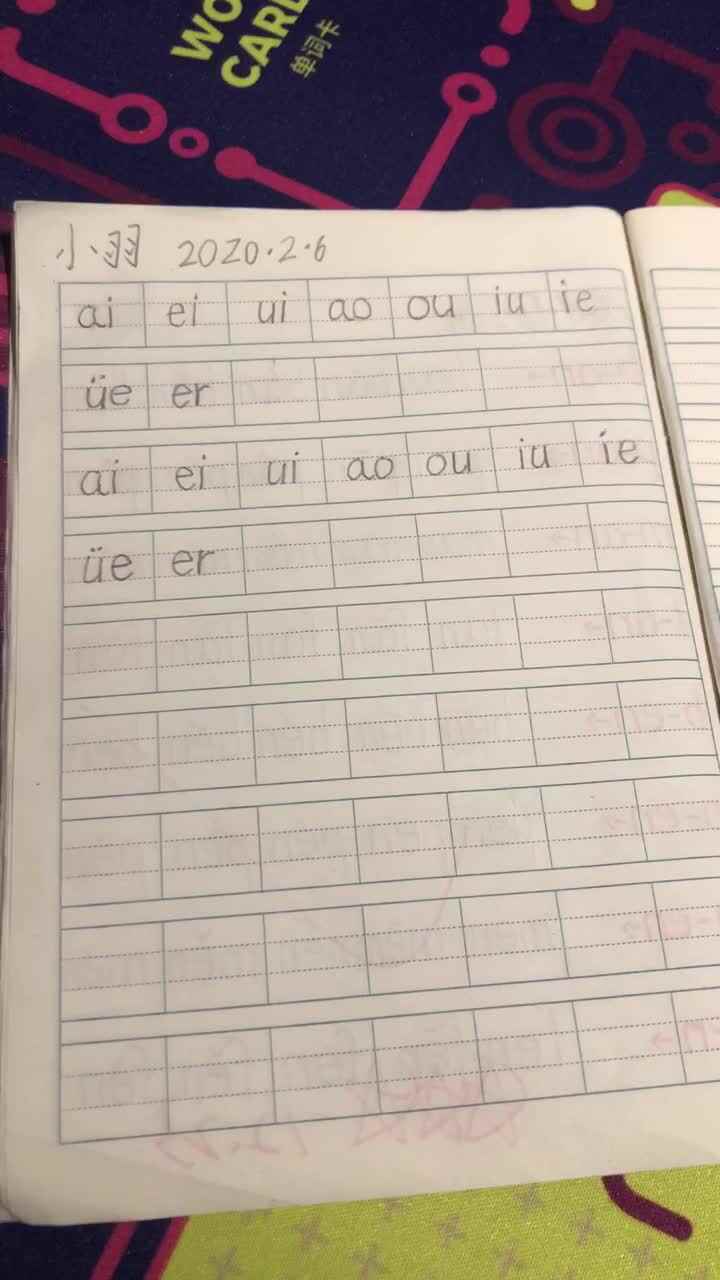 WO
CARD
单词卡
小羽 2020.2.6
ai ei ui ao ou iu ie
üe er
ai ei ui ao ou iu ie
üe er